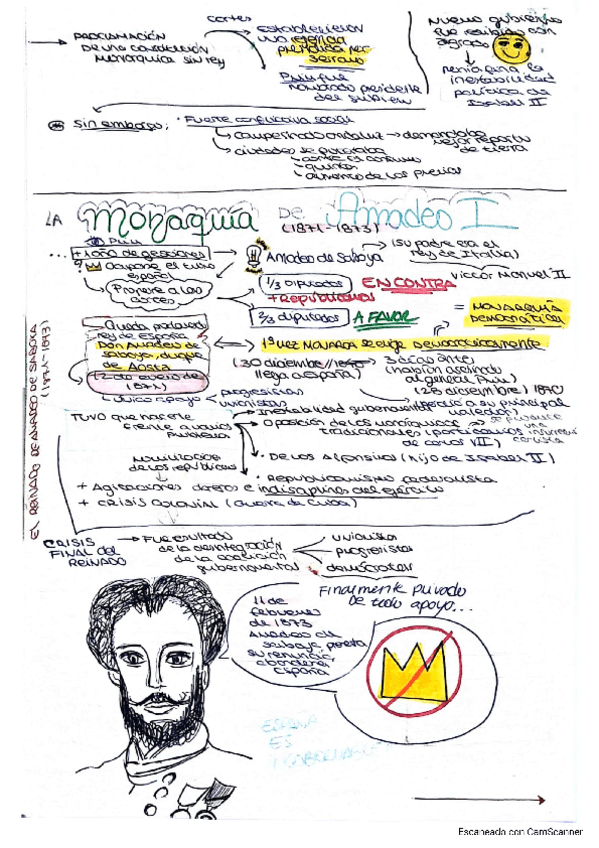 cortes
PROCLAMACIÓN
DE UNA CONSTITUCIÓN
MONÁRQUICA SIN REY
ESTABLECIERON
UNA REGENCIA
POR
SERRANO
PRIM FUE
NOMBRADO PRESIDENTE
DEL GOBIERNO
NUEVO GOBIERNO
FUE RECIBIDO CON
AGRADO
INESTABILIDAD
POLÍTICA DE
ISABEL II
SIN EMBARGO:
· FUERTE SOCIAL
CAMPESINADO ANDALUZ → DEMANDABA
MEJOR REPARTO
DE TIERRA
CIUDADES
- QUINTAS
- AUMENTO DE LOS PRECIOS
LA MONARQUÍA DE AMADEO I
(1871-1873)
PRIM
... + 1 AÑO DE GESTIONES
OCUPARÁ EL TRONO
ESPAÑOL
PROPONE A LAS
CORTES
AMADEO DE SABOYA
(SU PADRE ERA EL
REY DE ITALIA)
VICTOR MANUEL II
1/3 DIPUTADOS
+ REPUBLICANOS
EN CONTRA
2/3 DIPUTADOS
A FAVOR
= MONARQUÍA
DEMOCRÁTICA
QUEDA
REY DE ESPAÑA
DON AMADEO DE
SABOYA, DUQUE
DE AOSTA
(2 DE ENERO DE
1871)
1ª VEZ MONARCA SE ELIGE DEMOCRÁTICAMENTE
(30 DICIEMBRE
LLEGA A ESPAÑA)
3 DÍAS ANTES
HABÍAN ASESINADO
AL GENERAL PRIM
(28 DICIEMBRE) 1870
PERDIÓ A SU PRINCIPAL
VALEDOR
ÚNICO APOYO
PROGRESISTAS
UNIONISTAS
EL REINADO DE AMADEO DE SABOYA
(1871-1873)
TUVO QUE HACERLE
FRENTE A VARIOS
PROBLEMAS
· INESTABILIDAD GUBERNAMENTAL
· OPOSICIÓN DE LOS MONÁRQUICOS
TRADICIONALES (PARTIDARIOS
DE CARLOS VII)
SE PRODUCE
UNA
CARLISTA
· DE LOS ALFONSINOS (HIJO DE ISABEL II)
DE LOS REPUBLICANOS
· REPUBLICANISMO FEDERALISTA
+ INDISCIPLINA DEL EJÉRCITO
+ CRISIS COLONIAL (GUERRA DE CUBA)
CRISIS
FINAL DEL
REINADO
→ FUE RESULTADO
DE LA DESINTEGRACIÓN
DE LA COALICIÓN
GUBERNAMENTAL
UNIONISTAS
PROGRESISTAS
DEMÓCRATAS
FINALMENTE PRIVADO
DE TODO APOYO...
11 DE
FEBRERO
DE 1873
AMADEO DE
SABOYA PRESENTA
SU RENUNCIA,
ABANDONA
ESPAÑA
ESPAÑA
ES
Escaneado con CamScanner